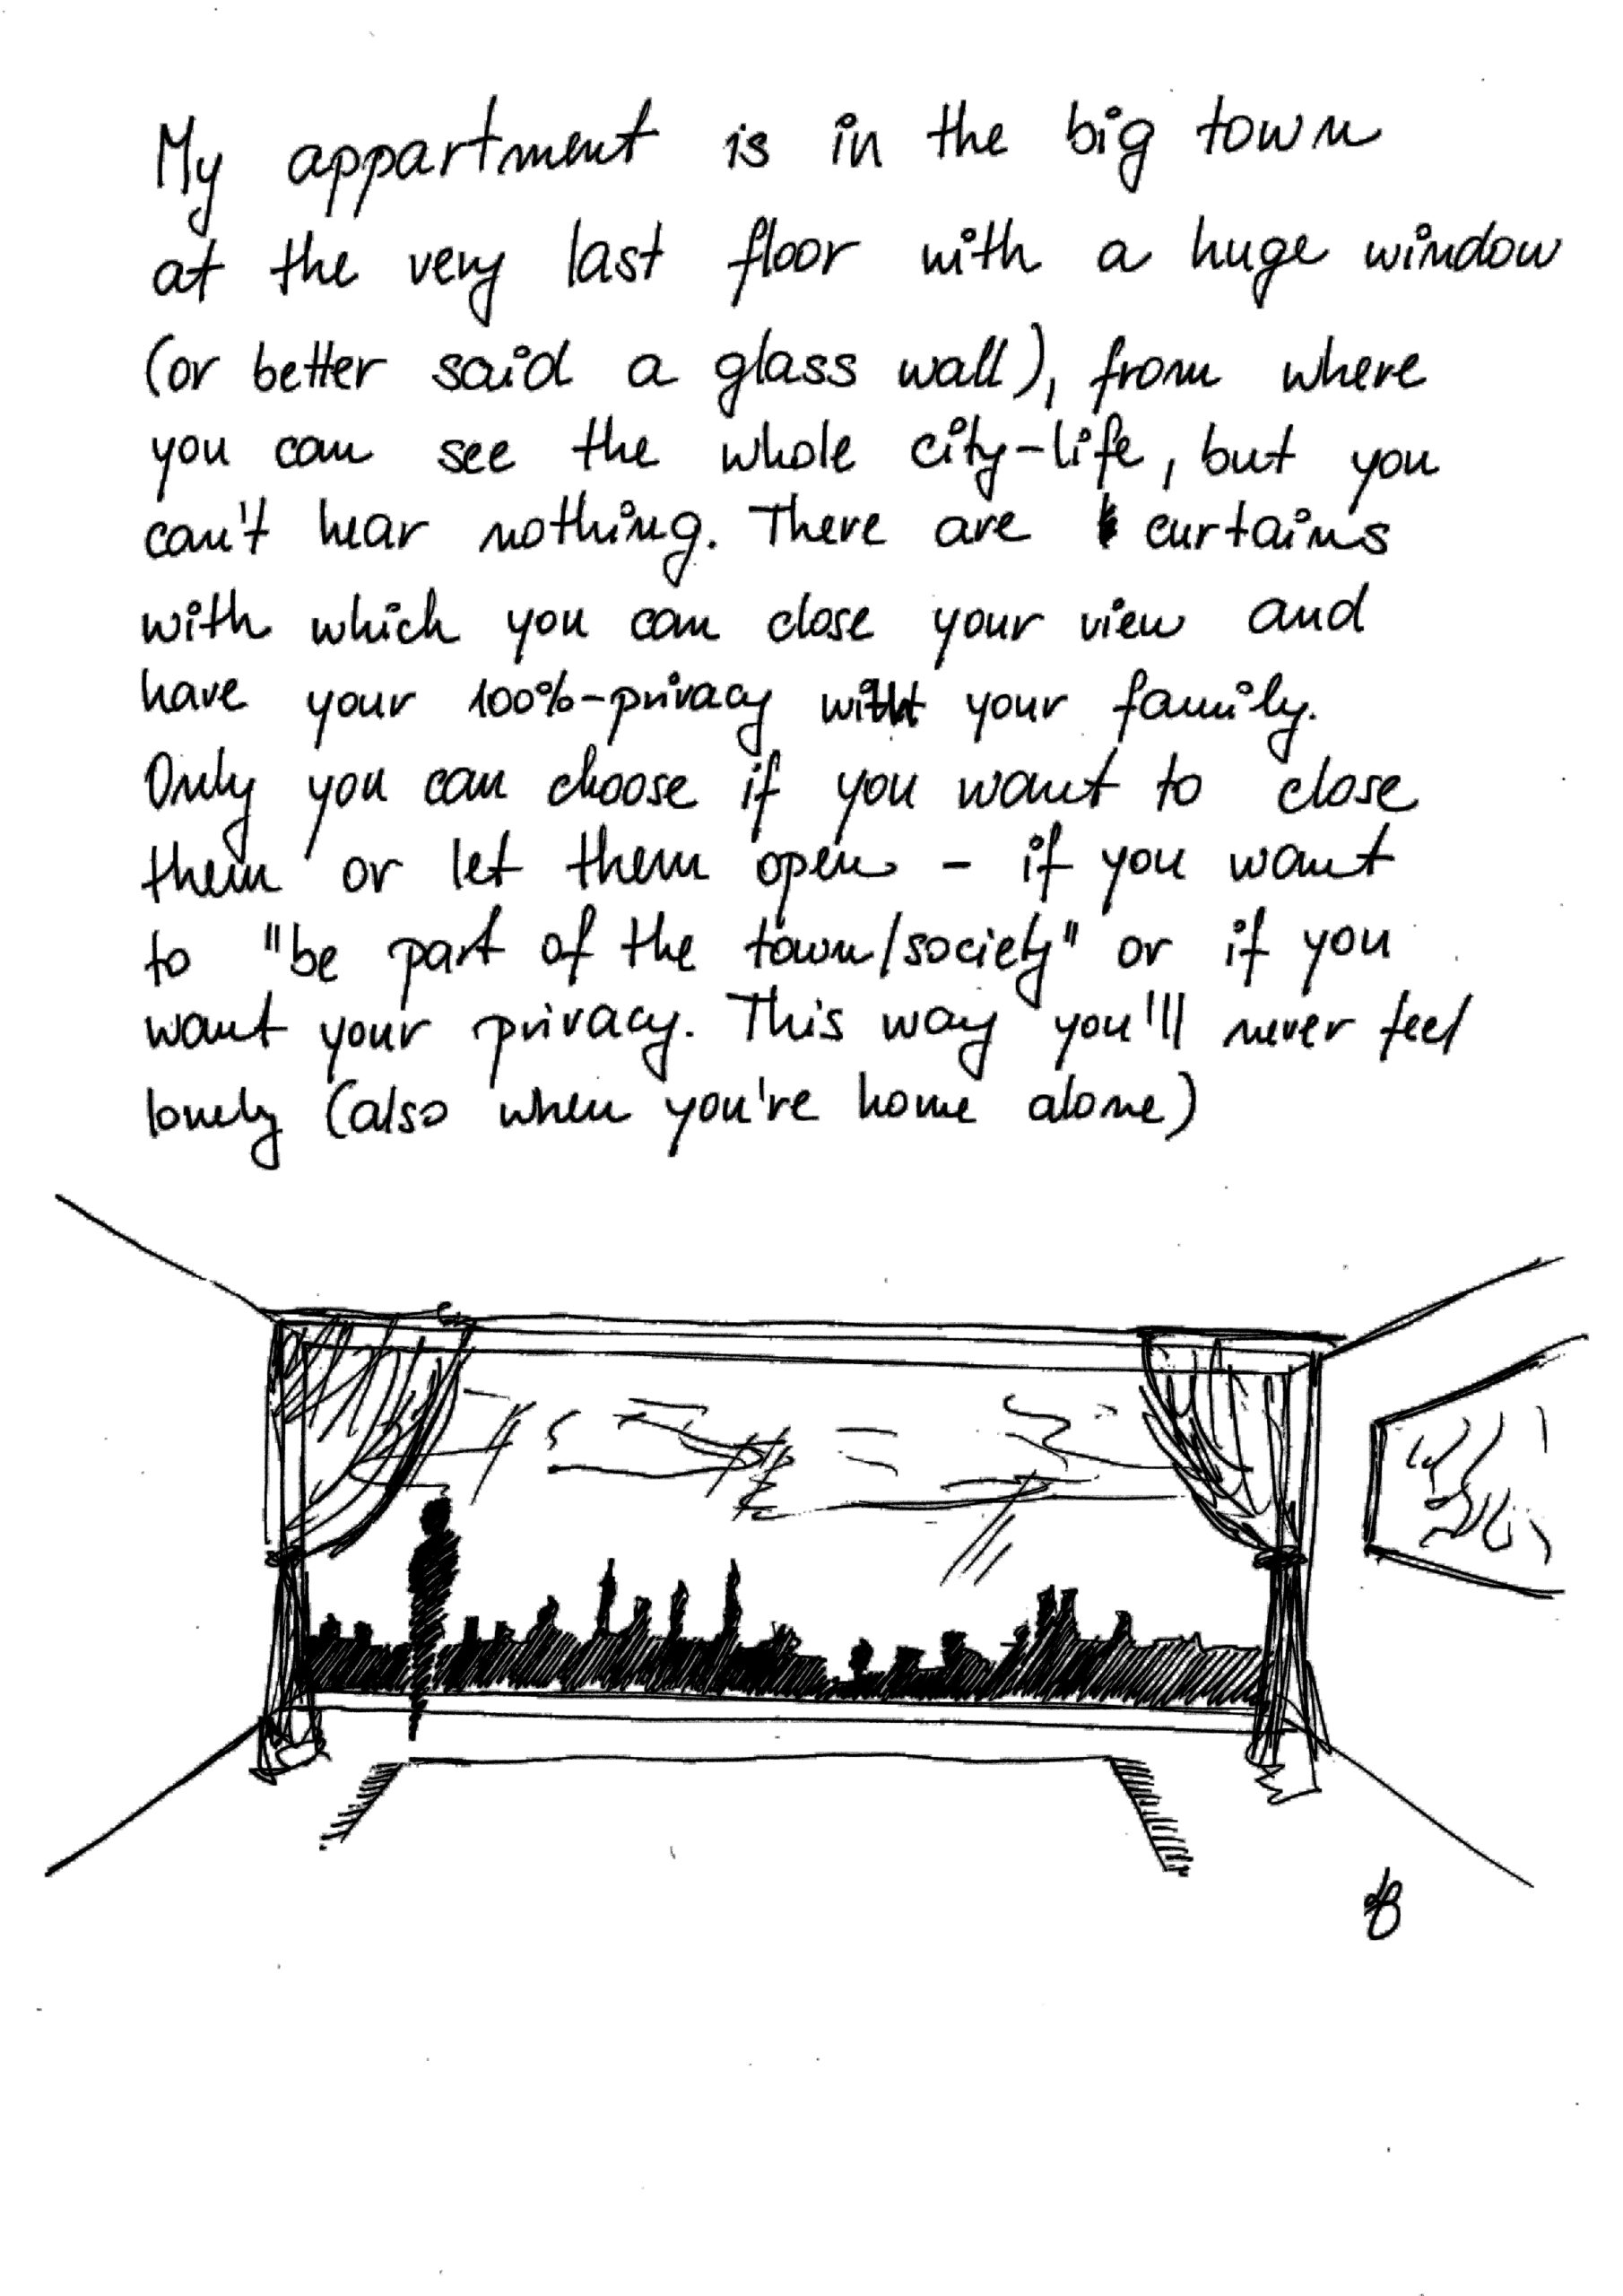 My appartment is in the big town
at the very last floor with a huge window
(or better said a glass wall), from where
you can see the whole city-life, but you
can't hear nothing. There are curtains
with which you can close your view and
have your 100%-privacy with your family.
Only you can choose if you want to close
them or let them open - if you want
to "be part of the town/society" or if you
want your privacy. This way you'll never feel
lonely (also when you're home alone)